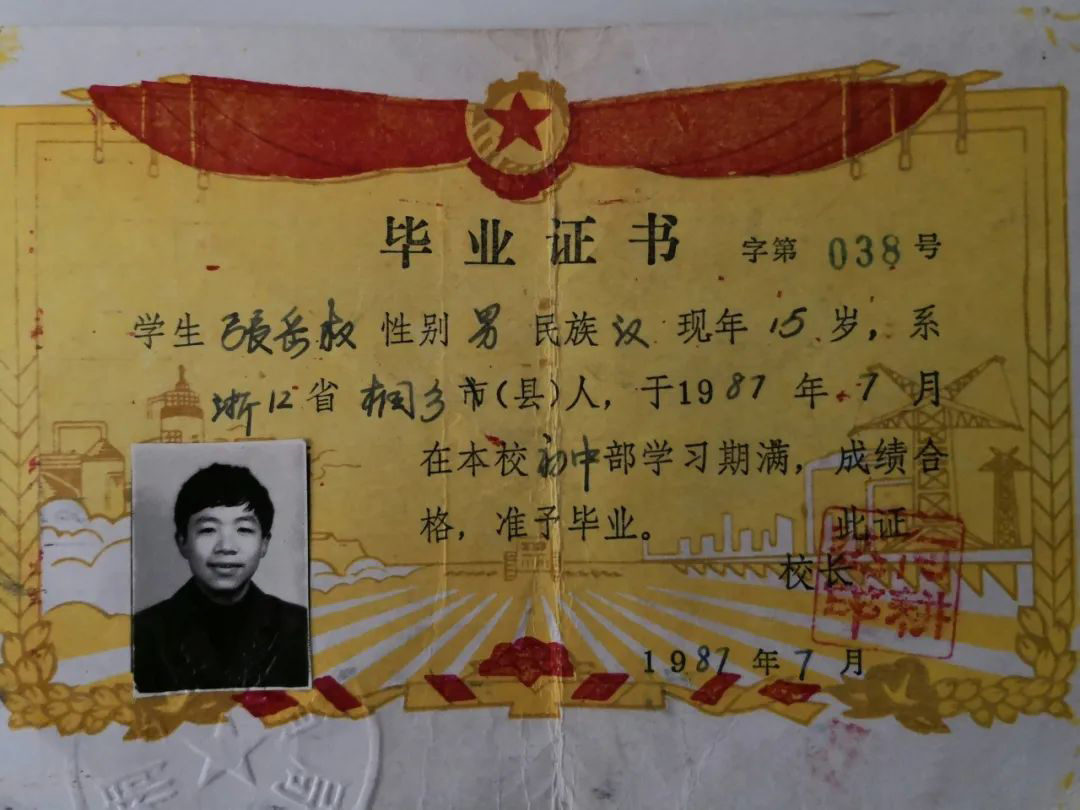 毕业证书 字第 038 号
学生 張岳权 性别 男 民族 汉 现年 15 岁，系
浙江省 桐乡 市(县)人，于1987 年 7 月
在本校初中部学习期满，成绩合
格，准予毕业。 此证
校长
1987 年 7 月